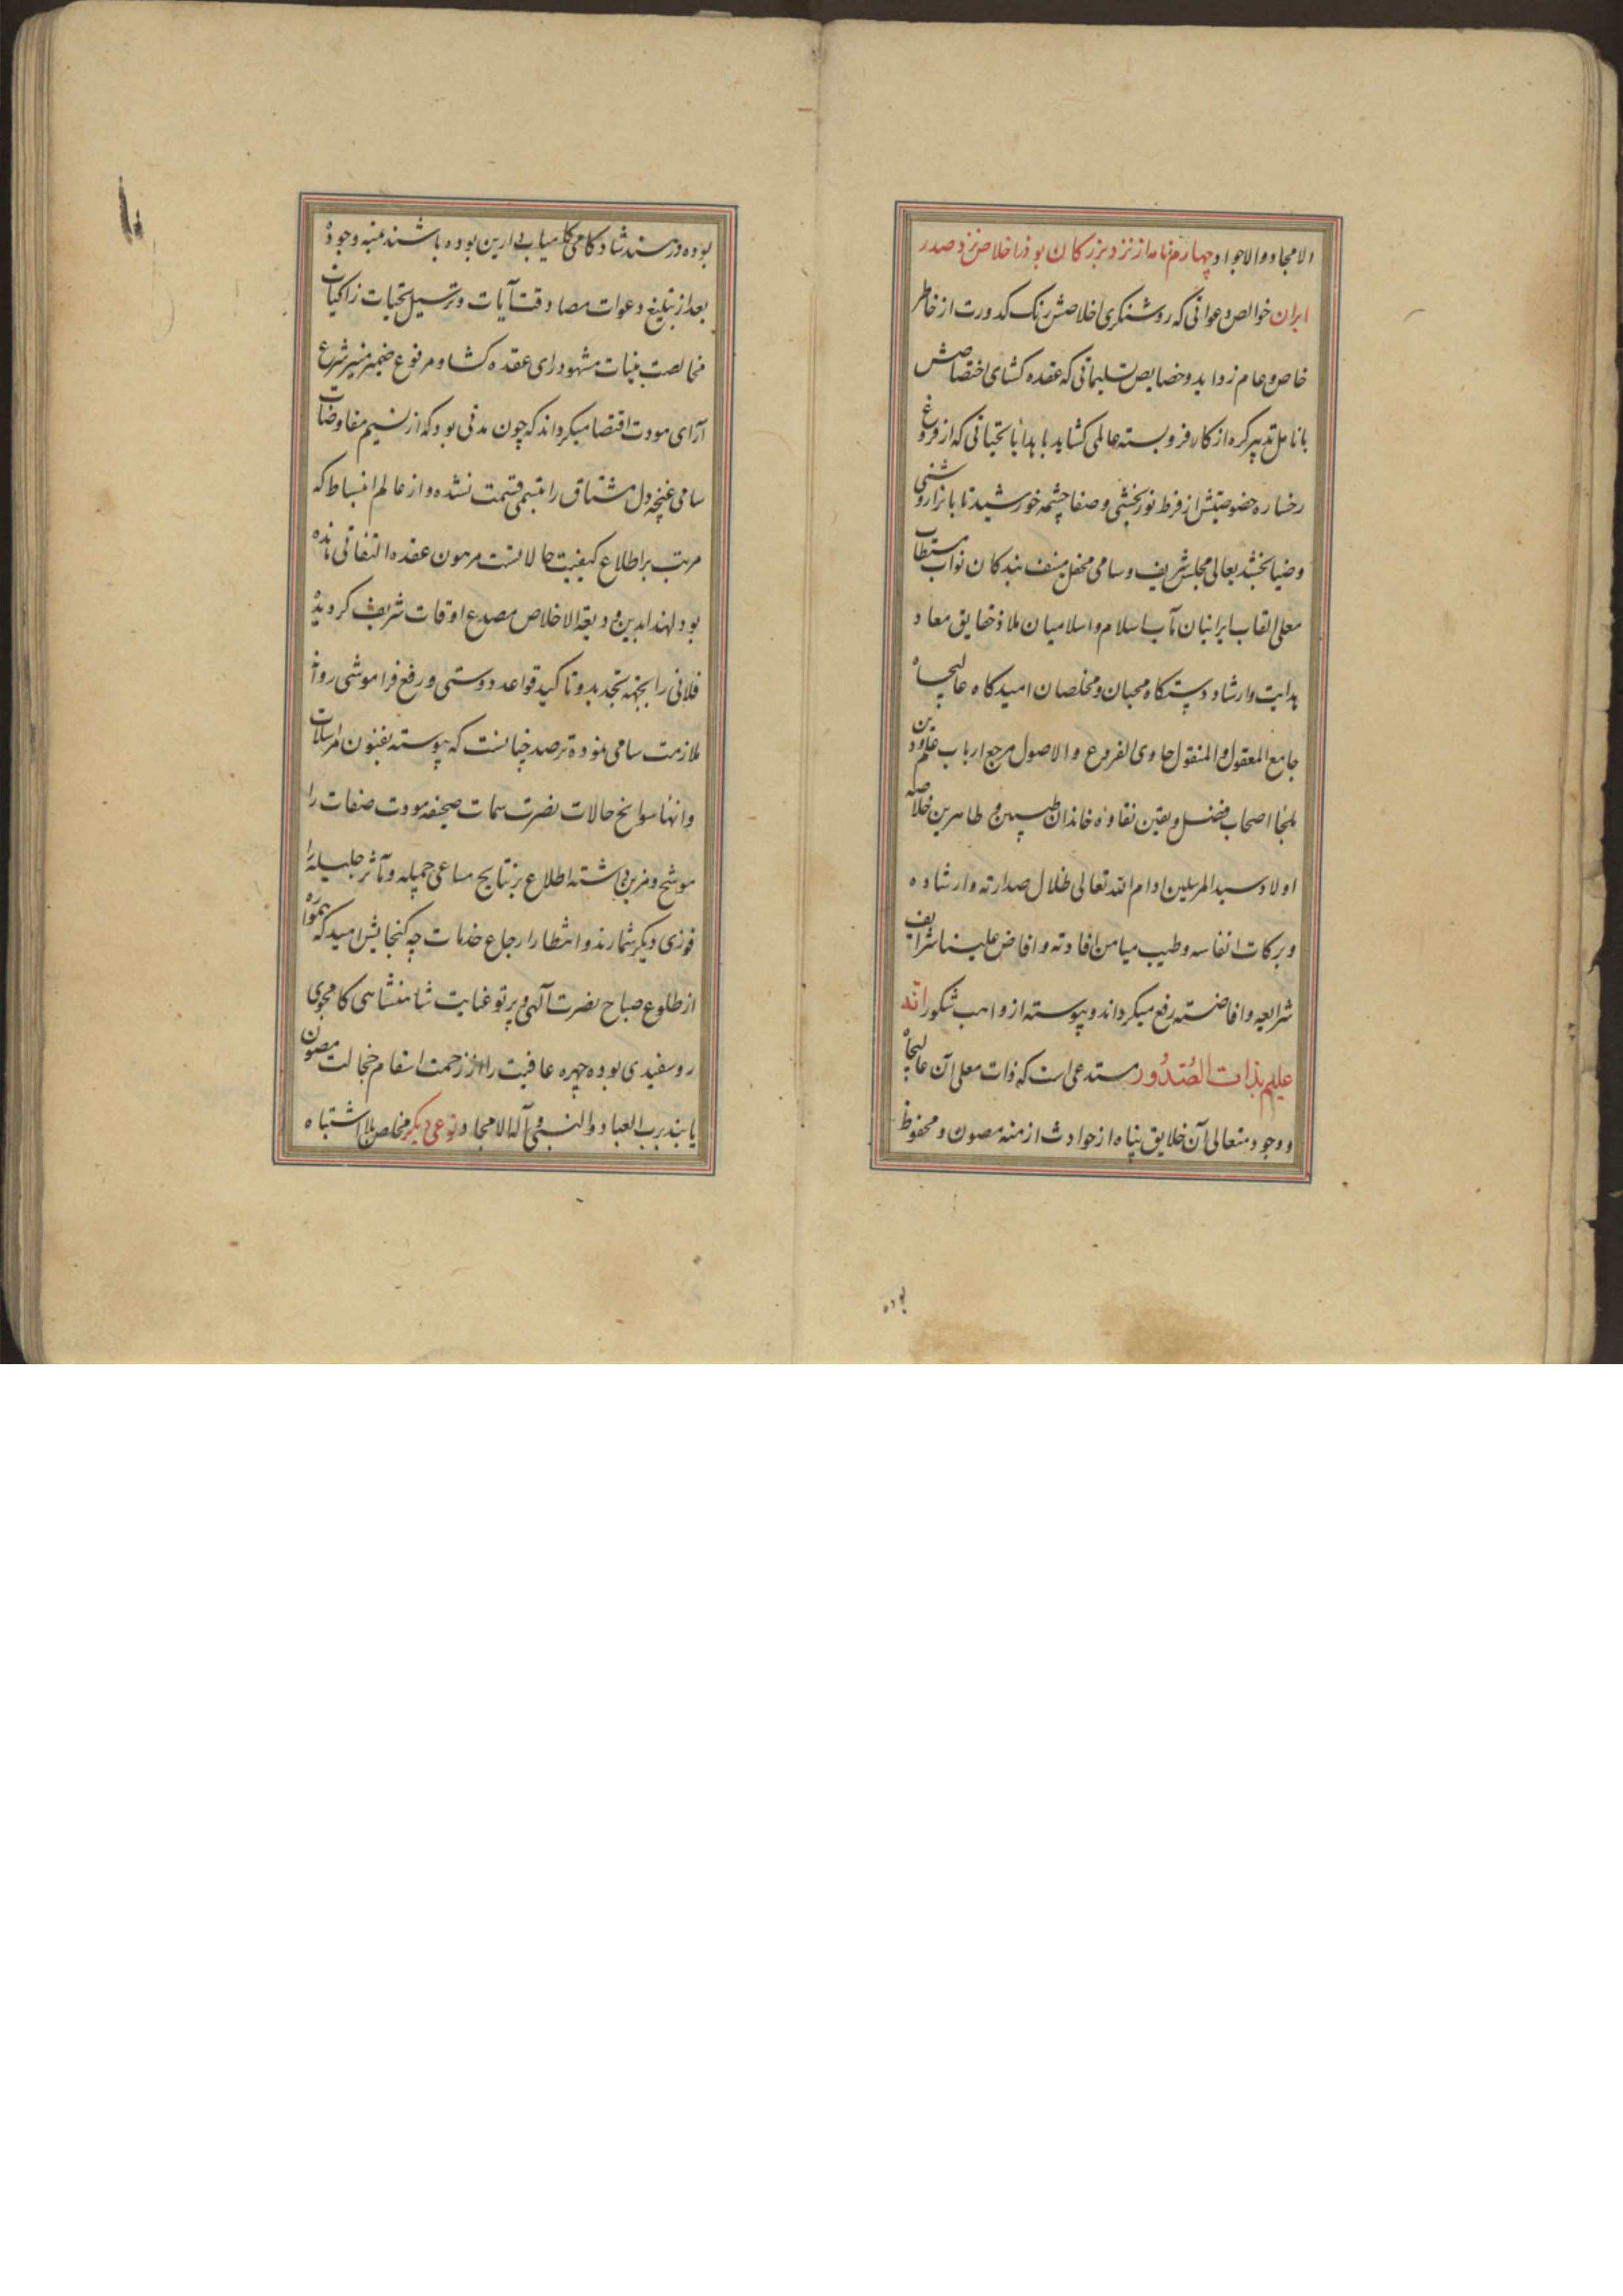 الامجاد والاجواد چهارم نامه از نزد بزرگان بوفرا خلاص نزد صدر
ایران خوالص دعواتی که روشنگری اخلاصش زنگ کدورت از خاطر
خاص و عام زداید و خصایص تسلیماتی که عقده کشای اختصاصش
بانامل تدبیر کره از کار فروبسته عالمی کشاید با هدایا تحیاتی که از فروغ
رخساره خصوصیتش از فرط نوربخشی و صفا چشمه خورشید تابانرا روشنی
و ضیا بخشد بعالی مجلس شریف و سامی محفل منیف بندکان نواب مستطاب
معلی القاب ایرانیان مآب اسلام و اسلامیان ملاذ حقایق معاد
هدایت و ارشاد دستکاه محبان و مخلصان امیدکاه عالیجاه
جامع المعقول و المنقول حاوی الفروع و الاصول مرجع ارباب علم و دین
ملجا اصحاب فضل و یقین نقاوه خاندان طیبین و طاهرین خلاصه
اولاد سید المرسلین ادام الله تعالی ظلال صدارته و ارشاده
و برکات انفاسه و طیب میامن افادته و افاض علینا شرایف
شرایعه و افاضته رفع میکرداند و پیوسته از واهب شکور انّه
علیم بذات الصّدُور مستدعی است که ذات معلی آن عالیجاه
و وجود متعالی آن خلایق پناه از حوادث ازمنه مصون و محفوظ
بوده
بوده در مسند شادکامی کامیاب دارین بوده باشند بمنه وجوده
بعد از تبلیغ دعوات مصادقت آیات و ترسیل تحیات زاکیات
مخالصت بینات مشهود رای عقده کشا و مرفوع ضمیر منیر شرع
آرای مودت اقتضا میکرداند که چون مدتی بود که از نسیم مفاوضات
سامی غنچه دل مشتاق را تبسمی قسمت نشده و از عالم انبساط که
مرتب بر اطلاع کیفیت حالاتست مرهون عقده التفاتی مانده
بود لهذا بدین ودیعة الاخلاص مصدع اوقات شریف کردیده
فلانی را بجهة تجدید و تاکید قواعد دوستی و رفع فراموشی روانه
ملازمت سامی نموده ترصد چنانست که پیوسته بفنون مراسلات
و انهاء سوانح حالات نصرت سمات صحیفه مودت صفات را
موشح و مزین داشته اطلاع بر نتایج مساعی جمیله و مآثر جلیله را
فوزی دیکر شمارند و انتظار ارجاع خدمات چه کنجایش امید که همواره
از طلوع صباح نصرت آلهی و پرتو عنایت شاهنشاهی کامجوی
روسفیدی بوده چهره عافیت را از زحمت اسقام خجالت مصون
یابند برب العباد والنبی و آله الامجاد نوعی دیکر مخلص بلا اشتباه